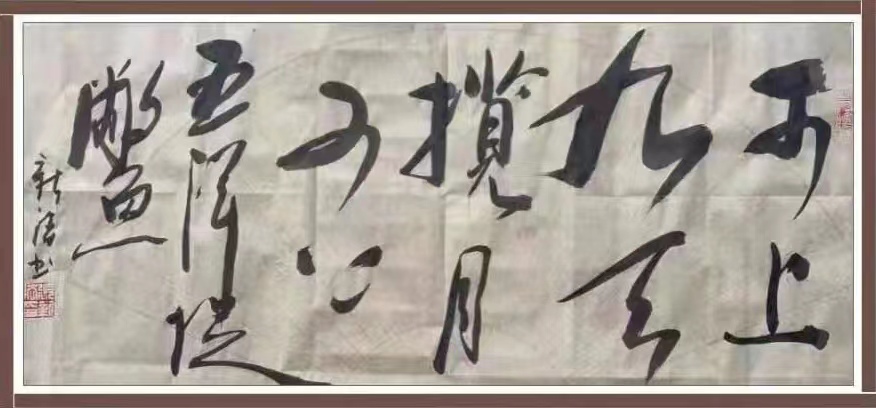 可上
九天
攬月
可下
五洋捉
鳖
新 书